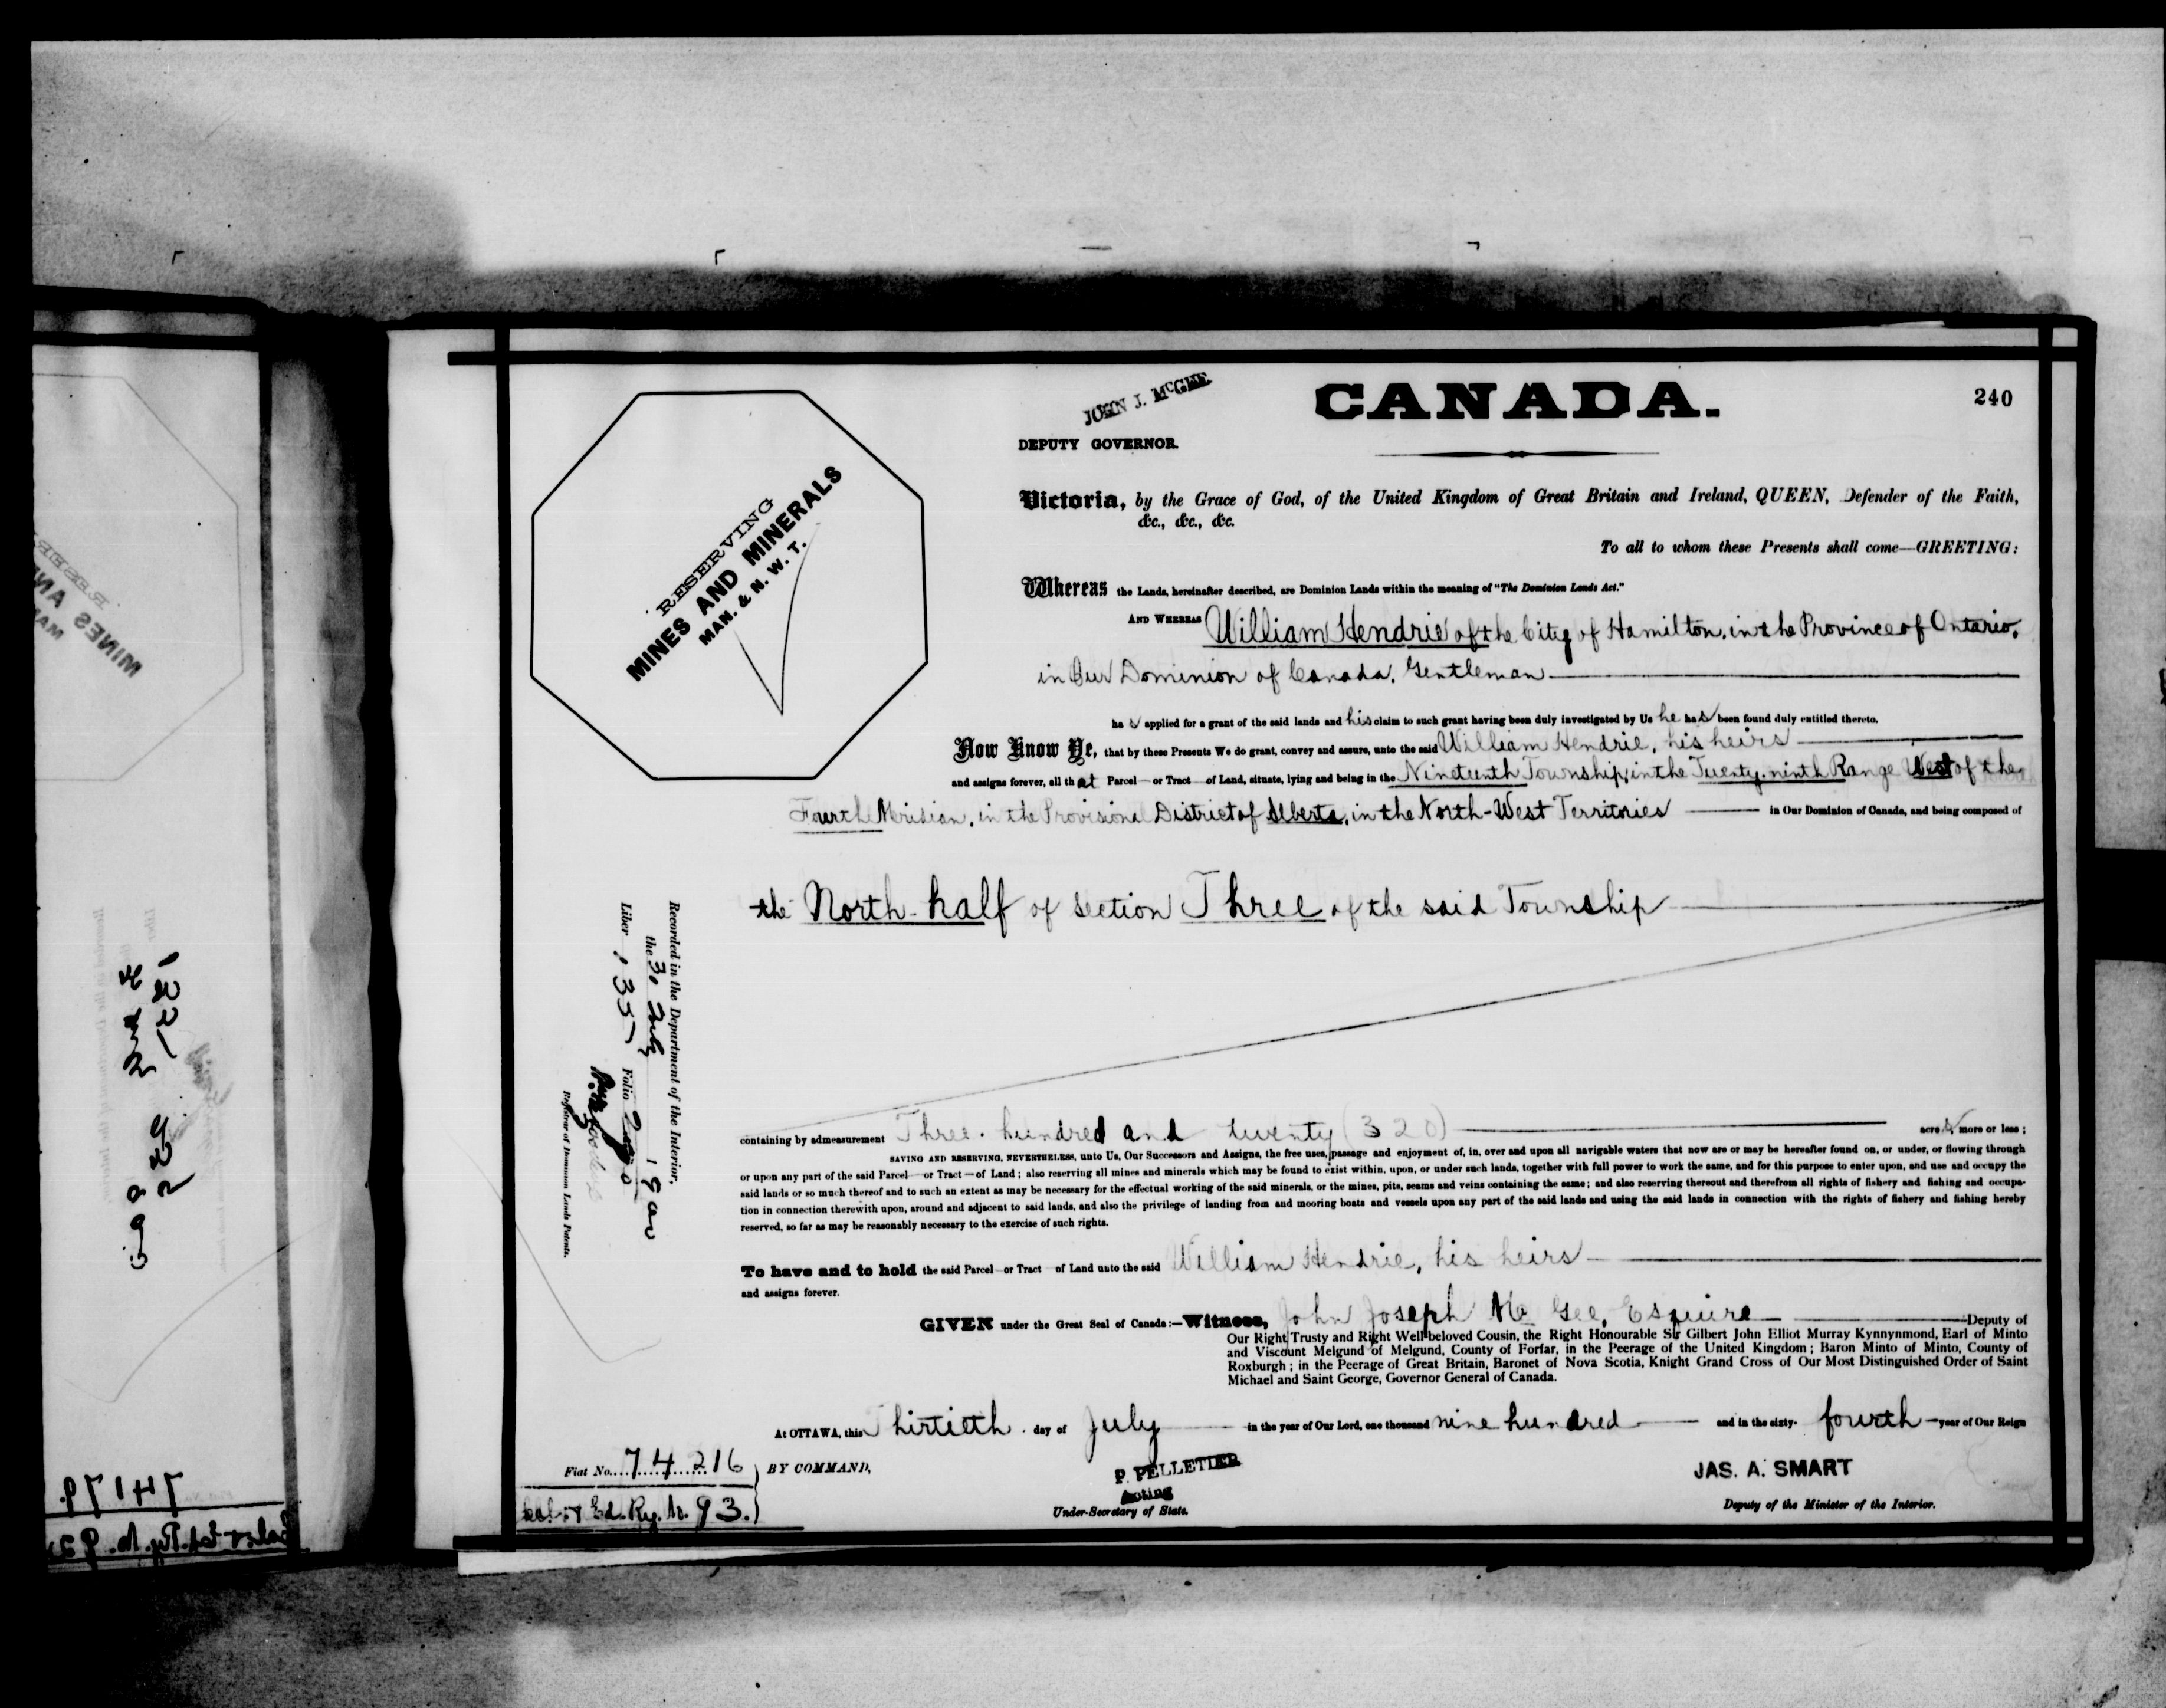 JOHN J. McGEE
DEPUTY GOVERNOR.
CANADA.
240
RESERVING
MINES AND MINERALS
MAN. & N. W. T.
Victoria, by the Grace of God, of the United Kingdom of Great Britain and Ireland, QUEEN, Defender of the Faith,
&c., &c., &c.
To all to whom these Presents shall come—GREETING:
Whereas the Lands, hereinafter described, are Dominion Lands within the meaning of "The Dominion Lands Act."
AND WHEREAS William Hendrie of the City of Hamilton, in the Province of Ontario,
in Our Dominion of Canada, Gentleman
has applied for a grant of the said lands and his claim to such grant having been duly investigated by Us he has been found duly entitled thereto.
Now Know Ye, that by these Presents We do grant, convey and assure, unto the said William Hendrie, his heirs
and assigns forever, all that Parcel or Tract of Land, situate, lying and being in the Nineteenth Township, in the Twenty-ninth Range West of the
Fourth Meridian, in the Provisional District of Alberta, in the North-West Territories in Our Dominion of Canada, and being composed of
the North-half of section Three of the said Township
containing by admeasurement Three hundred and twenty (320) acres more or less;
SAVING AND RESERVING, NEVERTHELESS, unto Us, Our Successors and Assigns, the free uses, passage and enjoyment of, in, over and upon all navigable waters that now are or may be hereafter found on, or under, or flowing through
or upon any part of the said Parcel—or Tract—of Land; also reserving all mines and minerals which may be found to exist within, upon, or under such lands, together with full power to work the same, and for this purpose to enter upon, and use and occupy the
said lands or so much thereof and to such an extent as may be necessary for the effectual working of the said minerals, or the mines, pits, seams and veins containing the same; and also reserving thereout and therefrom all rights of fishery and fishing and occupa-
tion in connection therewith upon, around and adjacent to said lands, and also the privilege of landing from and mooring boats and vessels upon any part of the said lands and using the said lands in connection with the rights of fishery and fishing hereby
reserved, so far as may be reasonably necessary to the exercise of such rights.
To have and to hold the said Parcel or Tract of Land unto the said William Hendrie, his heirs
and assigns forever.
GIVEN under the Great Seal of Canada:—Witness, John Joseph McGee, Esquire Deputy of
Our Right Trusty and Right Well-beloved Cousin, the Right Honourable Sir Gilbert John Elliot Murray Kynnynmond, Earl of Minto
and Viscount Melgund of Melgund, County of Forfar, in the Peerage of the United Kingdom; Baron Minto of Minto, County of
Roxburgh; in the Peerage of Great Britain, Baronet of Nova Scotia, Knight Grand Cross of Our Most Distinguished Order of Saint
Michael and Saint George, Governor General of Canada.
At OTTAWA, this Thirtieth day of July in the year of Our Lord, one thousand nine hundred and in the sixty-fourth year of Our Reign
Fiat No. 74216
Cal. & Ed. Ry. No. 93.
BY COMMAND,
P. PELLETIER
Acting
Under-Secretary of State.
JAS. A. SMART
Deputy of the Minister of the Interior.
Recorded in the Department of the Interior,
the 30 July 190
Liber 135 Folio
Registrar of Dominion Lands Patents.